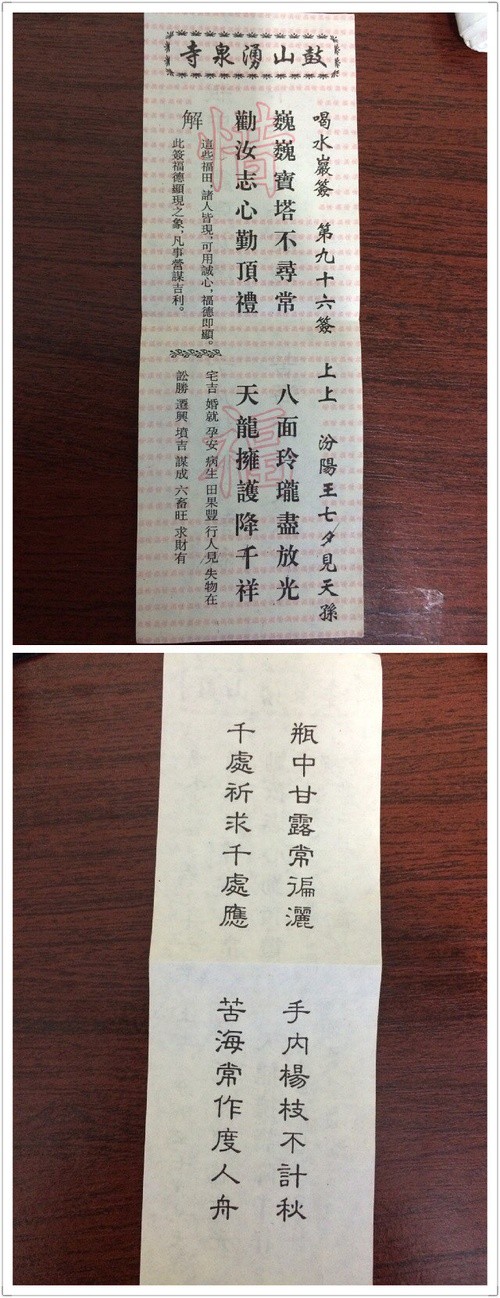 鼓山湧泉寺
喝水巖簽 第九十六簽 上上 汾陽王七夕見天孫
巍巍寶塔不尋常 八面玲瓏盡放光
勸汝志心勤頂禮 天龍擁護降千祥
解
這些福田，諸人皆現，可用誠心，福德即顯。
此簽福德顯現之象，凡事營謀吉利。
宅吉 婚就 孕安 病生 田果豐 行人見 失物在
訟勝 遷興 墳吉 謀成 六畜旺 求財有
惜
福
瓶中甘露常徧灑 手内楊枝不計秋
千處祈求千處應 苦海常作度人舟